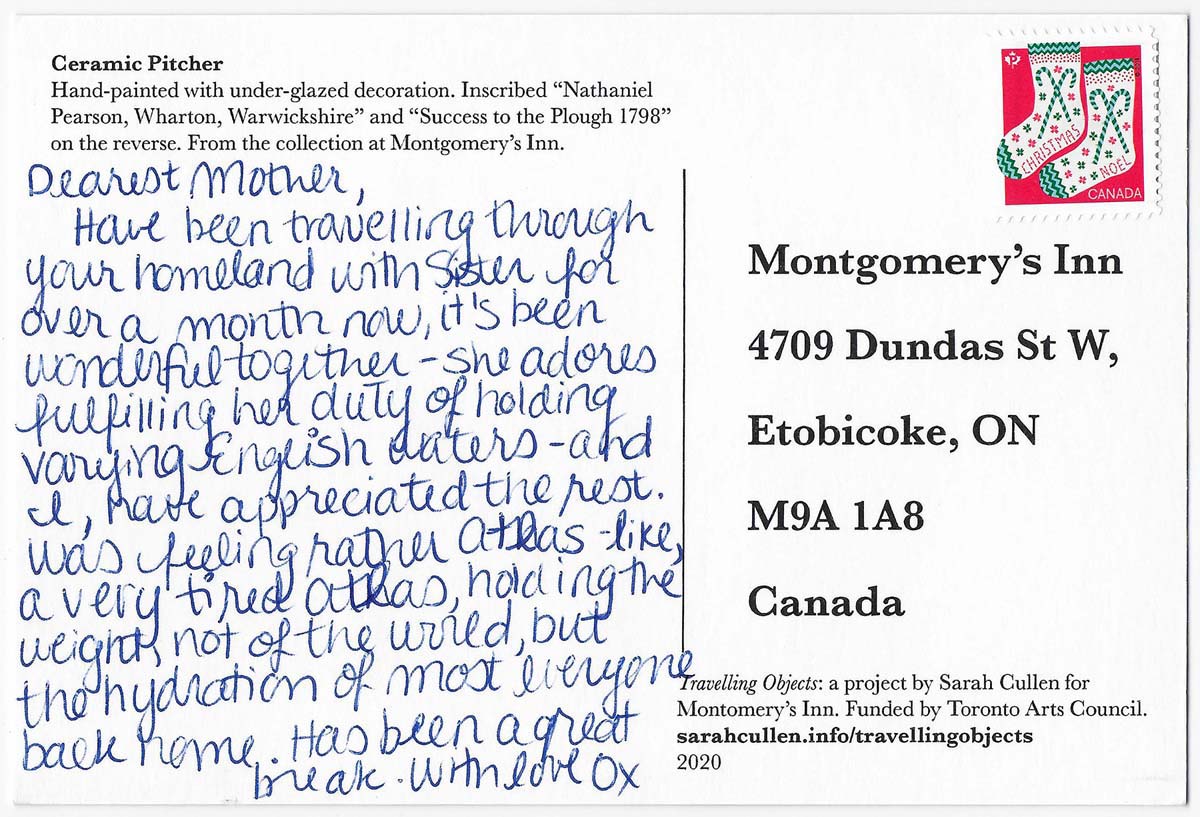 Ceramic Pitcher
Hand-painted with under-glazed decoration. Inscribed “Nathaniel
Pearson, Wharton, Warwickshire” and “Success to the Plough 1798”
on the reverse. From the collection at Montgomery’s Inn.
Dearest Mother,
Have been travelling through
your homeland with Sister for
over a month now, it's been
wonderful together - she adores
fulfilling her duty of holding
varying English waters - and
I, have appreciated the rest.
Was feeling rather Atlas-like,
a very tired Atlas, holding the
weight, not of the world, but
the hydration of most everyone
back home. Has been a great
break. With love Ox
CHRISTMAS
NOËL
CANADA
Montgomery’s Inn
4709 Dundas St W,
Etobicoke, ON
M9A 1A8
Canada
Travelling Objects: a project by Sarah Cullen for
Montomery’s Inn. Funded by Toronto Arts Council.
sarahcullen.info/travellingobjects
2020